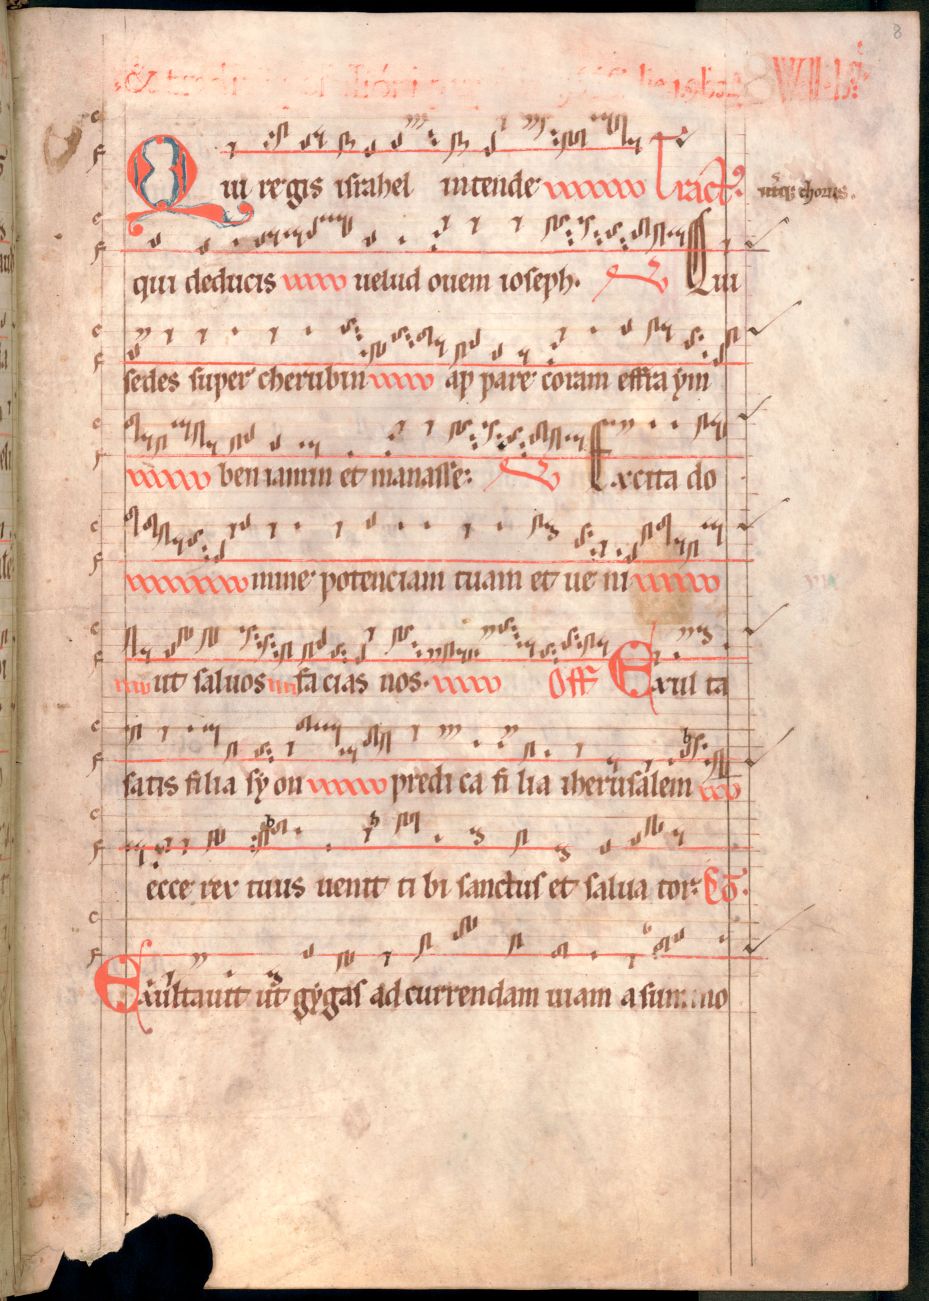 8
Qui regis israhel intende Tract
utq; chorus.
qui deducis uelud ouem ioseph. V Qui
sedes super cherubin ap pare coram effra ym
ben iamin et manasse: V Excita do
mine potenciam tuam et ue ni
ut saluos fa cias nos. Off Exul ta
satis filia sy on predi ca fi lia iherusalem
ecce rex tuus uenit ti bi sanctus et salua tor: Co.
Exultauit ut gygas ad currendam uiam a summo